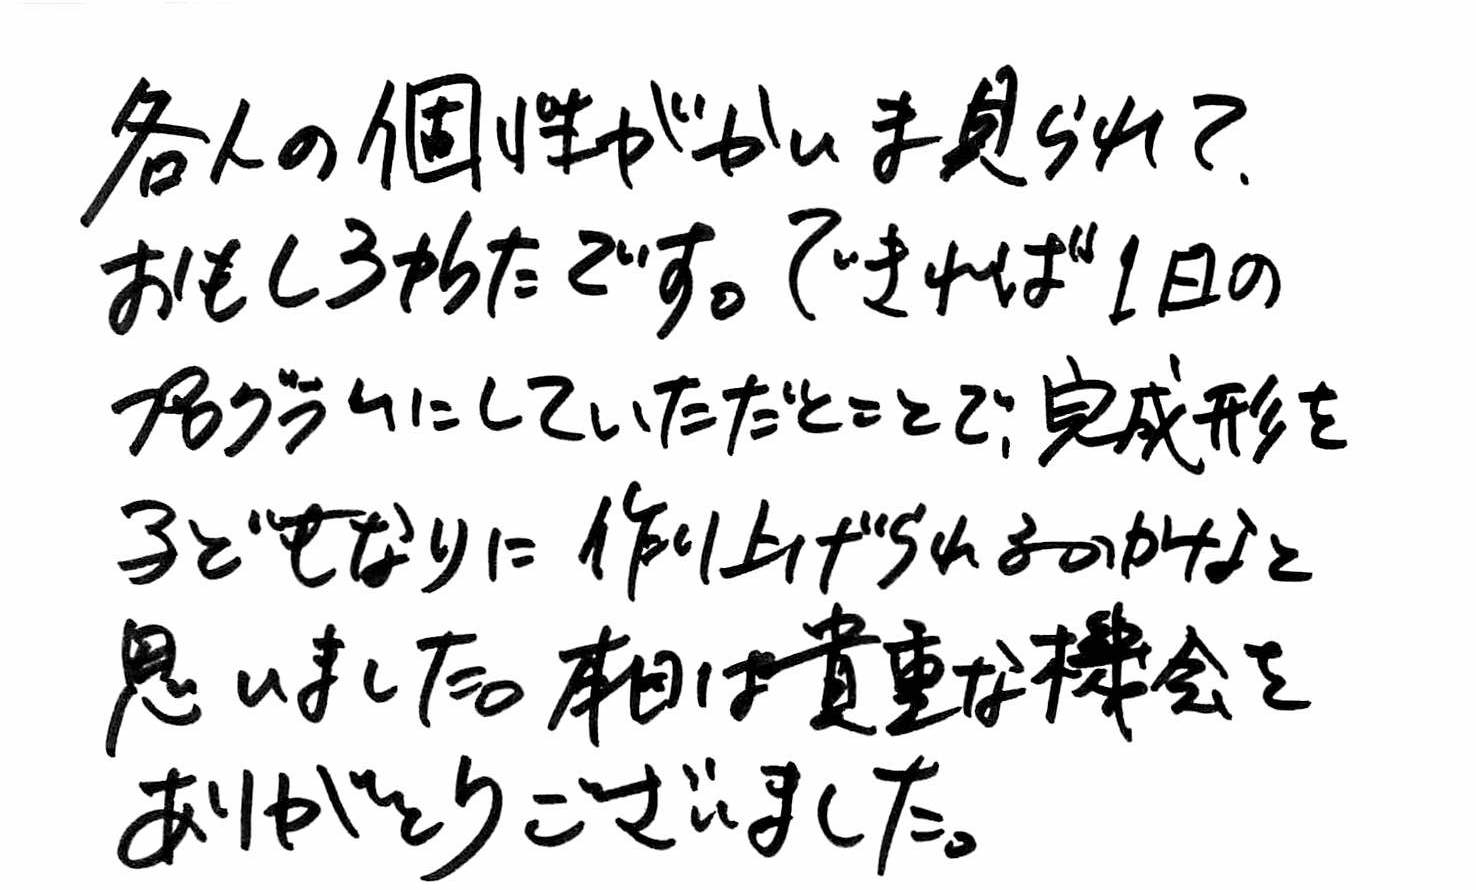 各人の個性がかいま見られて、
おもしろかったです。できれば1日の
プログラムにしていただとことで、完成形を
子どもなりに作り上げられるのかなと
思いました。本日は貴重な機会を
ありがとうございました。